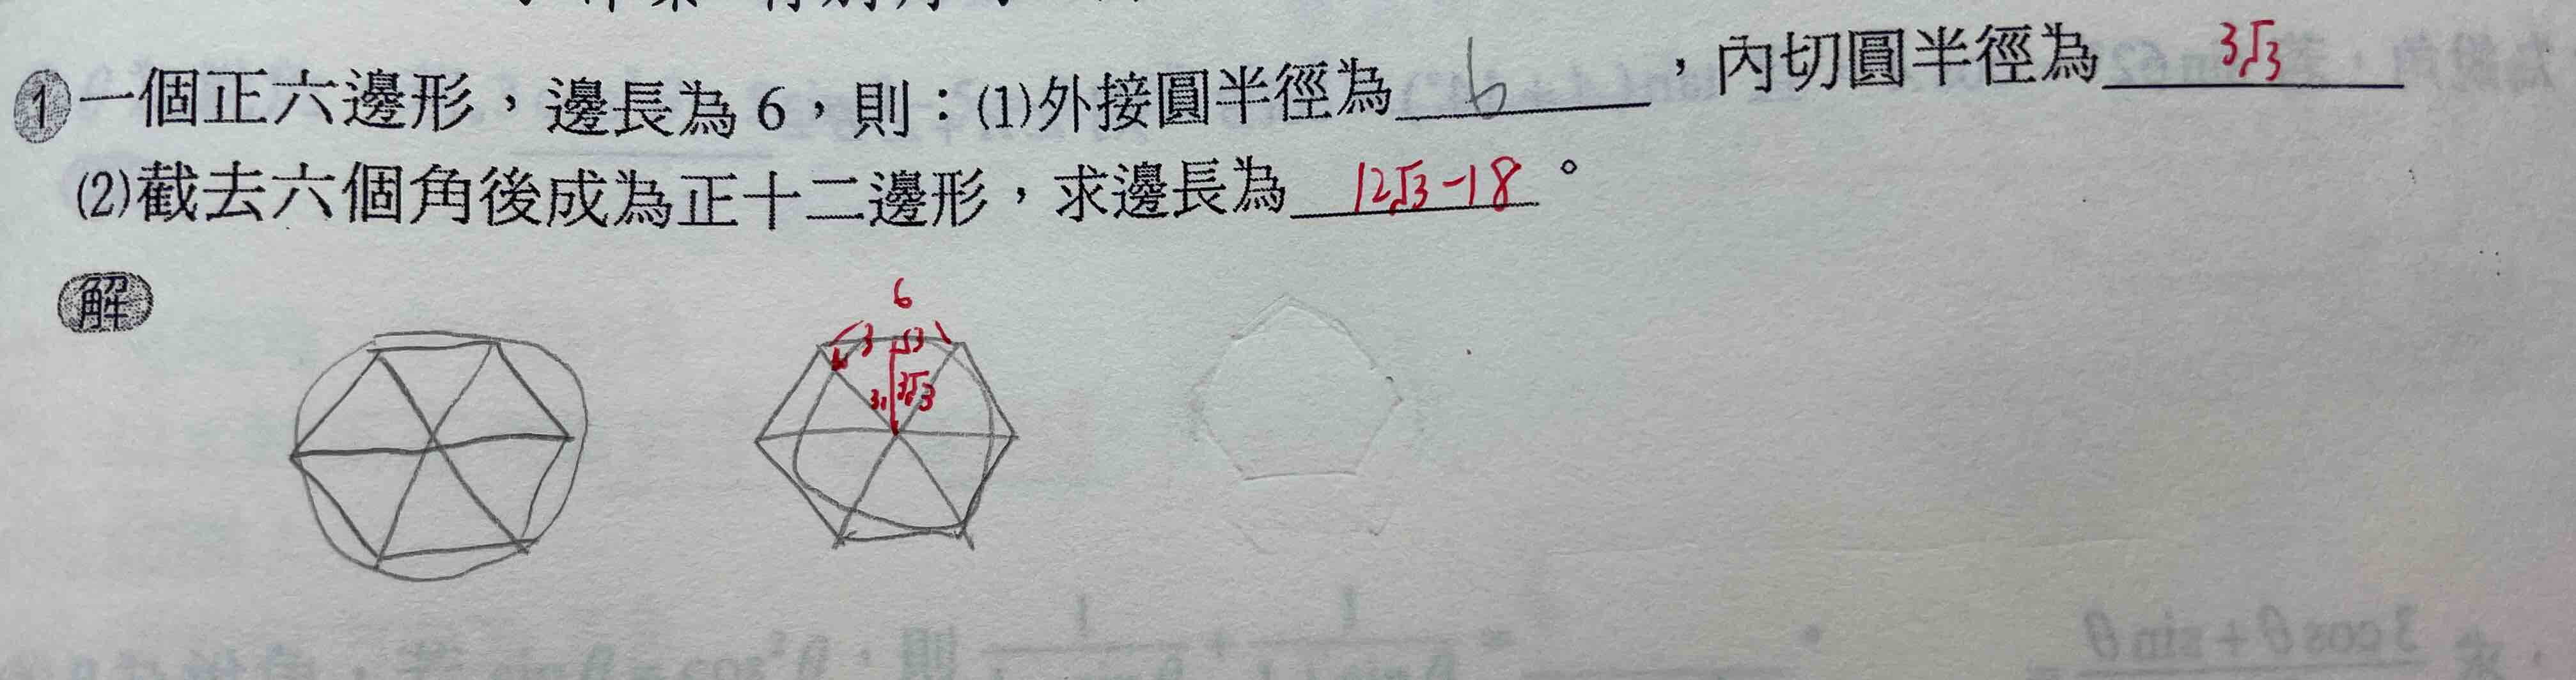 ①一個正六邊形，邊長為 6，則：⑴外接圓半徑為 6 ，內切圓半徑為 3√3
⑵截去六個角後成為正十二邊形，求邊長為 12√3-18 。
解
6
3 3
3√3